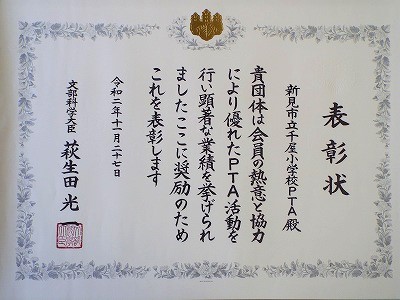 表彰状
新見市立千屋小学校PTA殿
貴団体は会員の熱意と協力
により優れたPTA活動を
行い顕著な業績を挙げられ
ましたここに奨励のため
これを表彰します
令和二年十一月二十七日
文部科学大臣 萩生田光